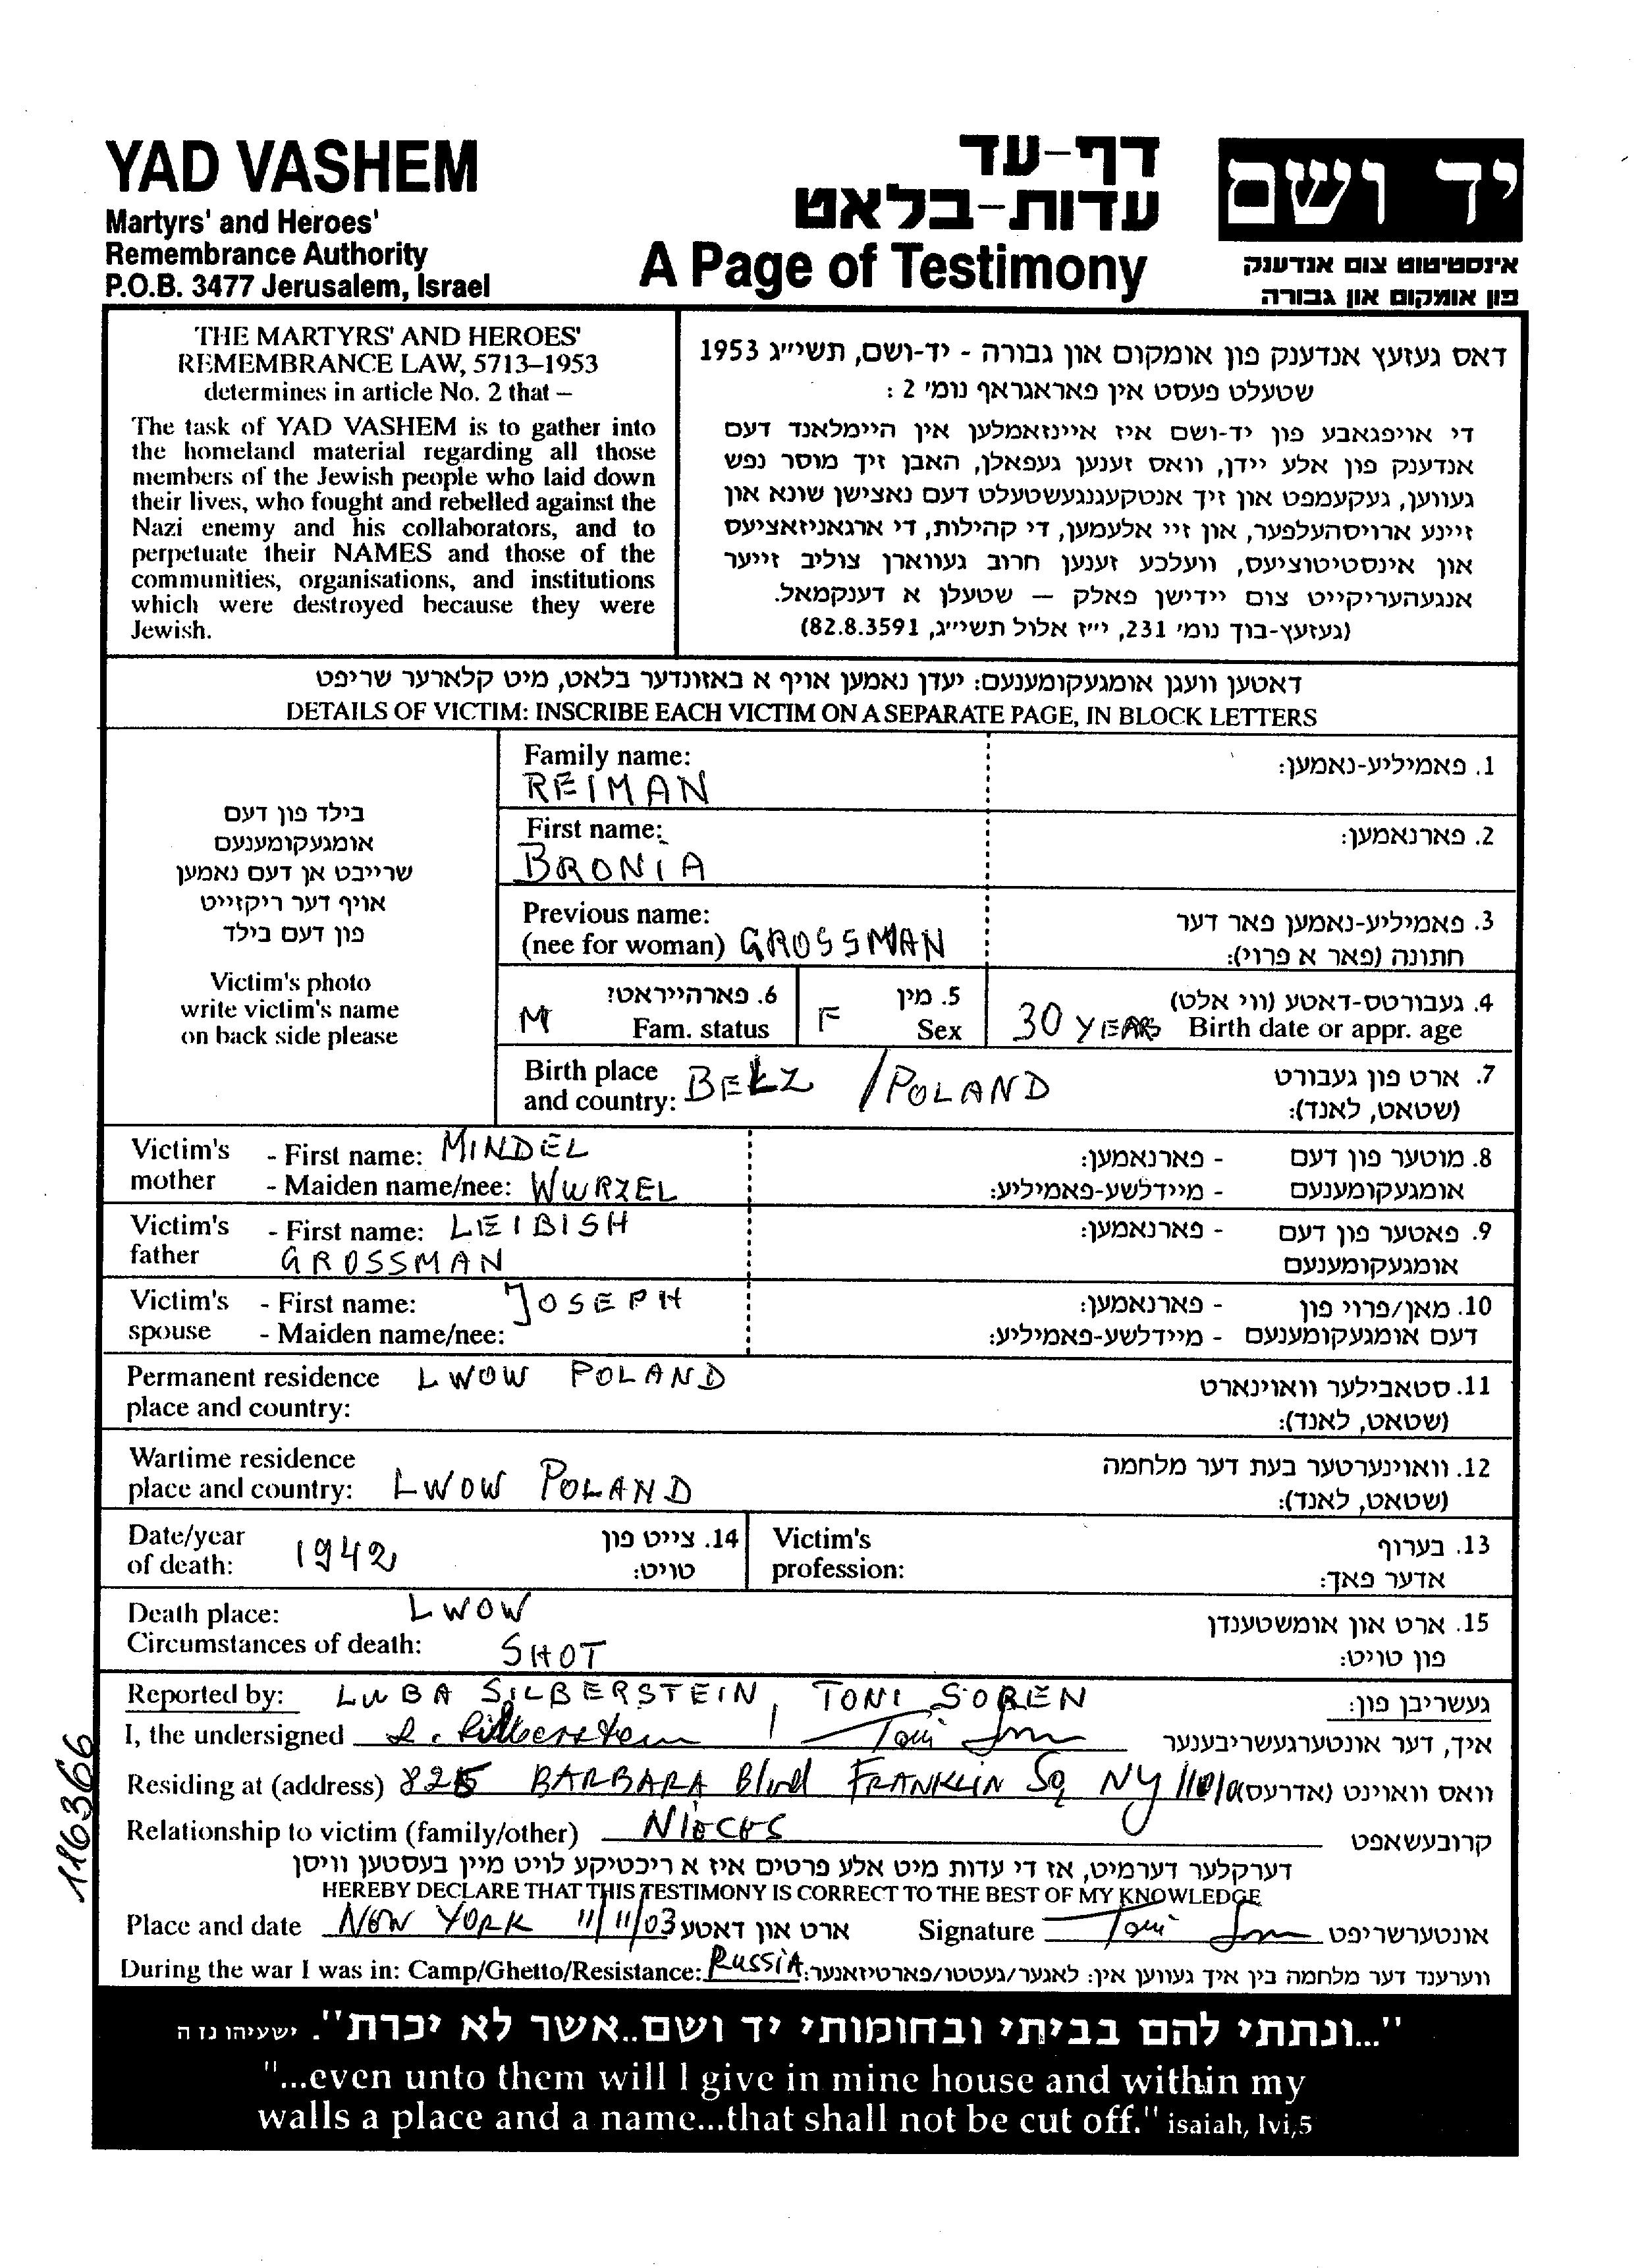 YAD VASHEM
Martyrs' and Heroes'
Remembrance Authority
P.O.B. 3477 Jerusalem, Israel
דף-עד
עדות-בלאט
A Page of Testimony
יד ושם
אינסטיטוט צום אנדענק
פון אומקום און גבורה
THE MARTYRS' AND HEROES'
REMEMBRANCE LAW, 5713–1953
determines in article No. 2 that –
The task of YAD VASHEM is to gather into
the homeland material regarding all those
members of the Jewish people who laid down
their lives, who fought and rebelled against the
Nazi enemy and his collaborators, and to
perpetuate their NAMES and those of the
communities, organisations, and institutions
which were destroyed because they were
Jewish.
דאס געזעץ אנדענק פון אומקום און גבורה - יד-ושם, תשי״ג 1953
שטעלט פעסט אין פאראגראף נומ׳ 2 :
די אויפגאבע פון יד-ושם איז איינזאמלען אין היימלאנד דעם
אנדענק פון אלע יידן, וואס זענען געפאלן, האבן זיך מוסר נפש
געווען, געקעמפט און זיך אנטקעגנגעשטעלט דעם נאצישן שונא און
זיינע ארויסהעלפער, און זיי אלעמען, די קהילות, די ארגאניזאציעס
און אינסטיטוציעס, וועלכע זענען חרוב געווארן צוליב זייער
אנגעהעריקייט צום יידישן פאלק – שטעלן א דענקמאל.
(געזעץ-בוך נומ׳ 231, י״ז אלול תשי״ג, 82.8.3591)
דאטען וועגן אומגעקומענעם: יעדן נאמען אויף א באזונדער בלאט, מיט קלארער שריפט
DETAILS OF VICTIM: INSCRIBE EACH VICTIM ON A SEPARATE PAGE, IN BLOCK LETTERS
בילד פון דעם
אומגעקומענעם
שרייבט אן דעם נאמען
אויף דער ריקזייט
פון דעם בילד
Victim's photo
write victim's name
on back side please
Family name: 1. פאמיליע-נאמען:
REIMAN
First name: 2. פארנאמען:
BRONIA
Previous name: 3. פאמיליע-נאמען פאר דער
(nee for woman) GROSSMAN חתונה (פאר א פרוי):
M 6. פארהייראט? F 5. מין 30 YEARS 4. געבורטס-דאטע (ווי אלט)
Fam. status Sex Birth date or appr. age
Birth place BEŁZ / POLAND 7. ארט פון געבורט
and country: (שטאט, לאנד):
Victim's - First name: MINDEL 8. מוטער פון דעם - פארנאמען:
mother - Maiden name/nee: WURZEL אומגעקומענעם - מיידלשע-פאמיליע:
Victim's - First name: LEIBISH 9. פאטער פון דעם - פארנאמען:
father GROSSMAN אומגעקומענעם
Victim's - First name: JOSEPH 10. מאן/פרוי פון - פארנאמען:
spouse - Maiden name/nee: דעם אומגעקומענעם - מיידלשע-פאמיליע:
Permanent residence LWOW POLAND 11. סטאבילער וואוינארט
place and country: (שטאט, לאנד):
Wartime residence 12. וואוינערטער בעת דער מלחמה
place and country: LWOW POLAND (שטאט, לאנד):
Date/year 1942 14. צייט פון Victim's 13. בערוף
of death: טויט: profession: אדער פאך:
Death place: LWOW 15. ארט און אומשטענדן
Circumstances of death: SHOT פון טויט:
Reported by: LUBA SILBERSTEIN, TONI SOREN געשריבן פון:
I, the undersigned L. Silberstein / Toni איך, דער אונטערגעשריבענער
Residing at (address) BARBARA Blvd FRANKLIN Sq NY 11010 וואס וואוינט (אדרעס)
Relationship to victim (family/other) NIECES קרובעשאפט
דערקלער דערמיט, אז די עדות מיט אלע פרטים איז א ריכטיקע לויט מיין בעסטען וויסן
HEREBY DECLARE THAT THIS TESTIMONY IS CORRECT TO THE BEST OF MY KNOWLEDGE
Place and date NEW YORK 11/11/03 ארט און דאטע Signature Toni אונטערשריפט
During the war I was in: Camp/Ghetto/Resistance: RUSSIA ווערענד דער מלחמה בין איך געווען אין: לאגער/געטטו/פארטיזאנער:
116366
"...ונתתי להם בביתי ובחומותי יד ושם..אשר לא יכרת". ישעיהו נז ה
"...even unto them will I give in mine house and within my
walls a place and a name...that shall not be cut off." isaiah, lvi,5